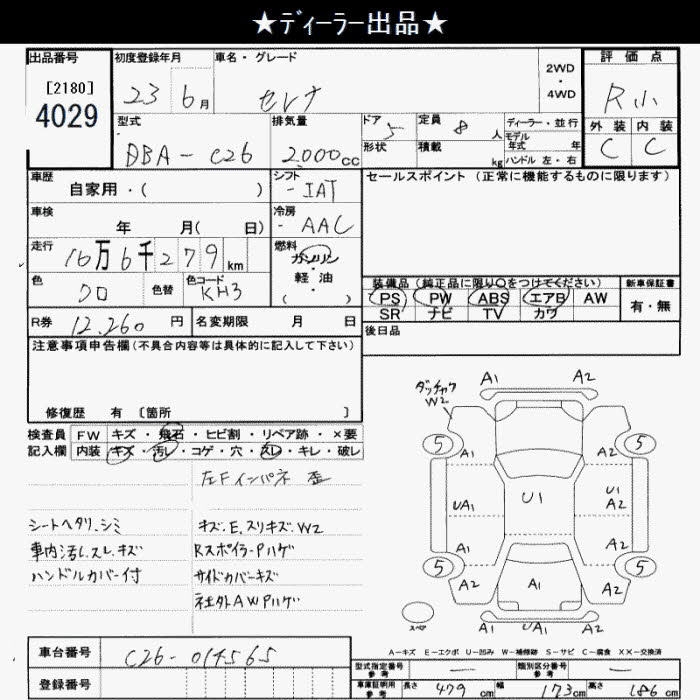 ★ディーラー出品★
出品番号
[2180]
4029
初度登録年月
23 6月
車名・グレード
セレナ
2WD
・
4WD
評価点
R小
外装 内装
C C
型式
DBA-C26
排気量
2,000cc
ドア 5
形状
定員 8人
積載 kg
ディーラー・並行
モデル年式 年
ハンドル 左・右
車歴
自家用・( )
シフト
-IAT
セールスポイント (正常に機能するものに限ります)
車検
年 月( 日)
冷房
-AAC
走行
16万6千279km
燃料
ガソリン
軽油
( )
色
クロ
色替
色コード
KH3
装備品 (純正品に限り○をつけてください)
新車保証書
PS PW ABS エアB AW
SR ナビ TV カワ
有・無
R券 12,260円
名変期限 月 日
後日品
注意事項申告欄 (不具合内容等は具体的に記入して下さい)
修復歴 有 〔箇所 〕
検査員記入欄
FW キズ・飛石・ヒビ割・リペア跡・×要
内装 キズ・汚レ・コゲ・穴・スレ・キレ・破レ
左Fインパネ 歪
シートヘタリ、シミ
キズ.E.スリキズ.W2
車内汚レ.スレ.キズ
RスポイラーPハゲ
ハンドルカバー付
サイドカバーキズ
社外AWPハゲ
A1 A2
ダッチャク
W2
5 5
A1 A2
UA1 U1 U1
A2
A1 A2
5 5
A2 A1 A2
スペア
A1 UA1 A2
A-キズ E-エクボ U-凹み W-補修跡 S-サビ C-腐食 XX-交換済
車台番号
C26-014565
登録番号
型式指定番号 参考 —
類別区分番号 参考 —
車庫証明用 参考
長さ 479cm 幅 173cm 高さ 186cm